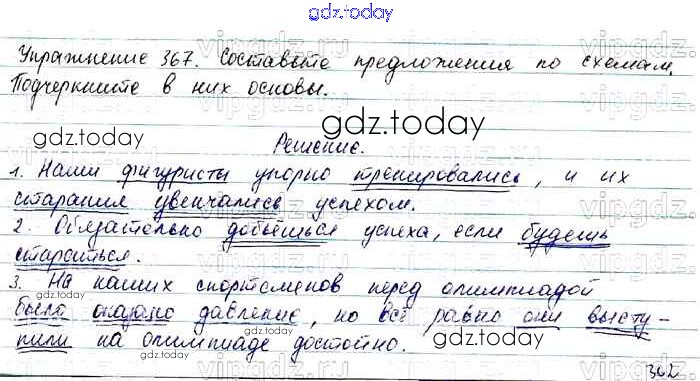 gdz.today
Упражнение 367. Составьте предложения по схемам.
Подчеркните в них основы.
gdz.today
gdz.today
Решение.
1. Наши фигуристы упорно тренировались, и их
старания увенчались успехом.
2. Обязательно добьёшься успеха, если будешь
стараться.
gdz.today
3. На наших спортсменов перед олимпиадой
было оказано давление, но всё равно они высту-
пили на олимпиаде достойно.
gdz.today
362